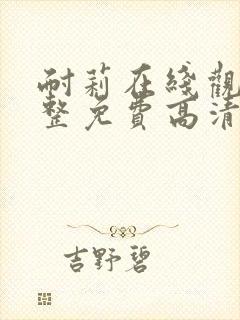 耐莉在綫觀
整免費高清
吉野碧